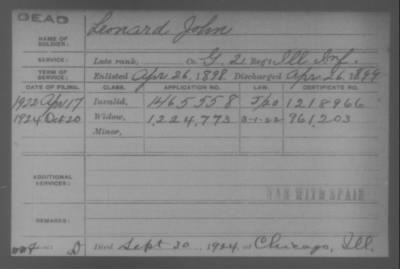 DEAD
NAME OF SOLDIER: Leonard John
SERVICE: Late rank, Co. G. 2 Reg't Ill. Inf.
TERM OF SERVICE: Enlisted Apr. 26, 1898 Discharged Apr. 26, 1899
DATE OF FILING. CLASS. APPLICATION NO. LAW. CERTIFICATE NO.
1922 Apr 17 Invalid, 1465558 5/20 1218966
1924 Oct 20 Widow, 1,224,773 961,203
Minor,
ADDITIONAL SERVICES:
WAR WITH SPAIN
REMARKS:
D Died Sept 30, 1924, at Chicago, Ill.